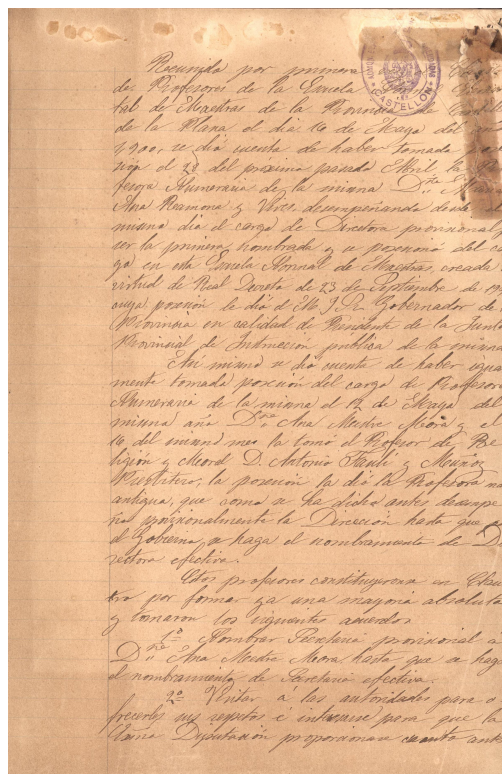 Reunida por primera
de Profesores de la Escuela
mal de Maestras de la Provincia de
de la Plana el dia 16 de Mayo del
1900, se dió cuenta de haber tomado
sión el 28 del próximo pasado Abril la
fesora Numeraria de la misma Dña
Ana Ramona y Vives, desempeñando desde
mismo dia el cargo de Directora provisional
ser la primera nombrada y se posesionó del
go en esta Escuela Normal de Maestras, creada
virtud de Real Decreto de 23 de Septiembre de
cuya posesión le dió el Gobernador de
Provincia en calidad de Presidente de la Junta
Provincial de Instrucción pública de la misma
Asi mismo se dió cuenta de haber igual
mente tomado posesión del cargo de Profesor
Numeraria de la misma el 12 de Mayo del
mismo año Dña Ana Mestre Mora y el
16 del mismo mes la tomó el Profesor de Re
ligión y Moral D. Antonio y Muñoz
Presbítero, la posesión la dió la Profesora
antigua, que como se ha dicho antes desempe
ña provisionalmente la Dirección hasta que
el Gobierno, se haga el nombramiento de Di
rectora efectiva.
Estos profesores constituyeron un Claus
tro por formar ya una mayoria absoluta
y tomaron los siguientes acuerdos
1º Nombrar Secretaria provisional a
Dña Ana Mestre Mora, hasta que se haga
el nombramiento de Secretaria efectiva.
2º Visitar á las autoridades para o
frecerles sus respetos é para que la
Diputación proporcionase cuanto antes
CASTELLÓN